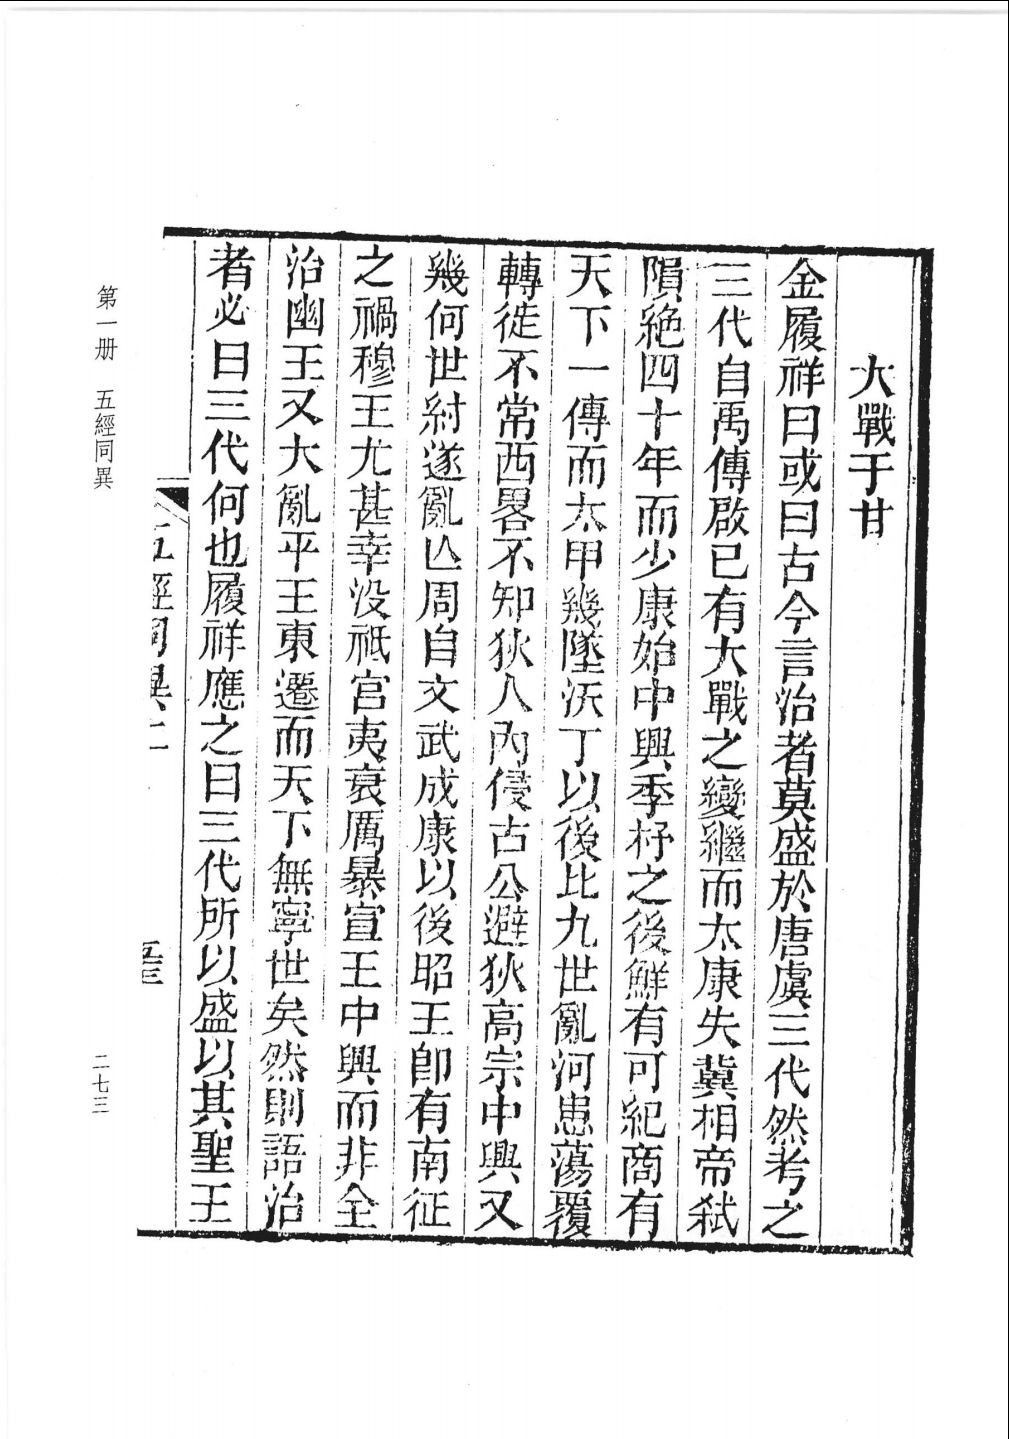 大戰于甘
金履祥曰或曰古今言治者莫盛於唐虞三代然考之
三代自禹傳啟已有大戰之變繼而太康失冀相帝弑
隕絶四十年而少康始中興季杼之後鮮有可紀商有
天下一傳而太甲幾墜沃丁以後比九世亂河患蕩覆
轉徙不常西畧不知狄人內侵古公避狄高宗中興又
幾何世紂遂亂亾周自文武成康以後昭王卽有南征
之禍穆王尤甚幸没祇宫夷衰厲暴宣王中興而非全
治幽王又大亂平王東遷而天下無寧世矣然則語治
者必曰三代何也履祥應之曰三代所以盛以其聖王
五經同異上
第一册 五經同異
二七三